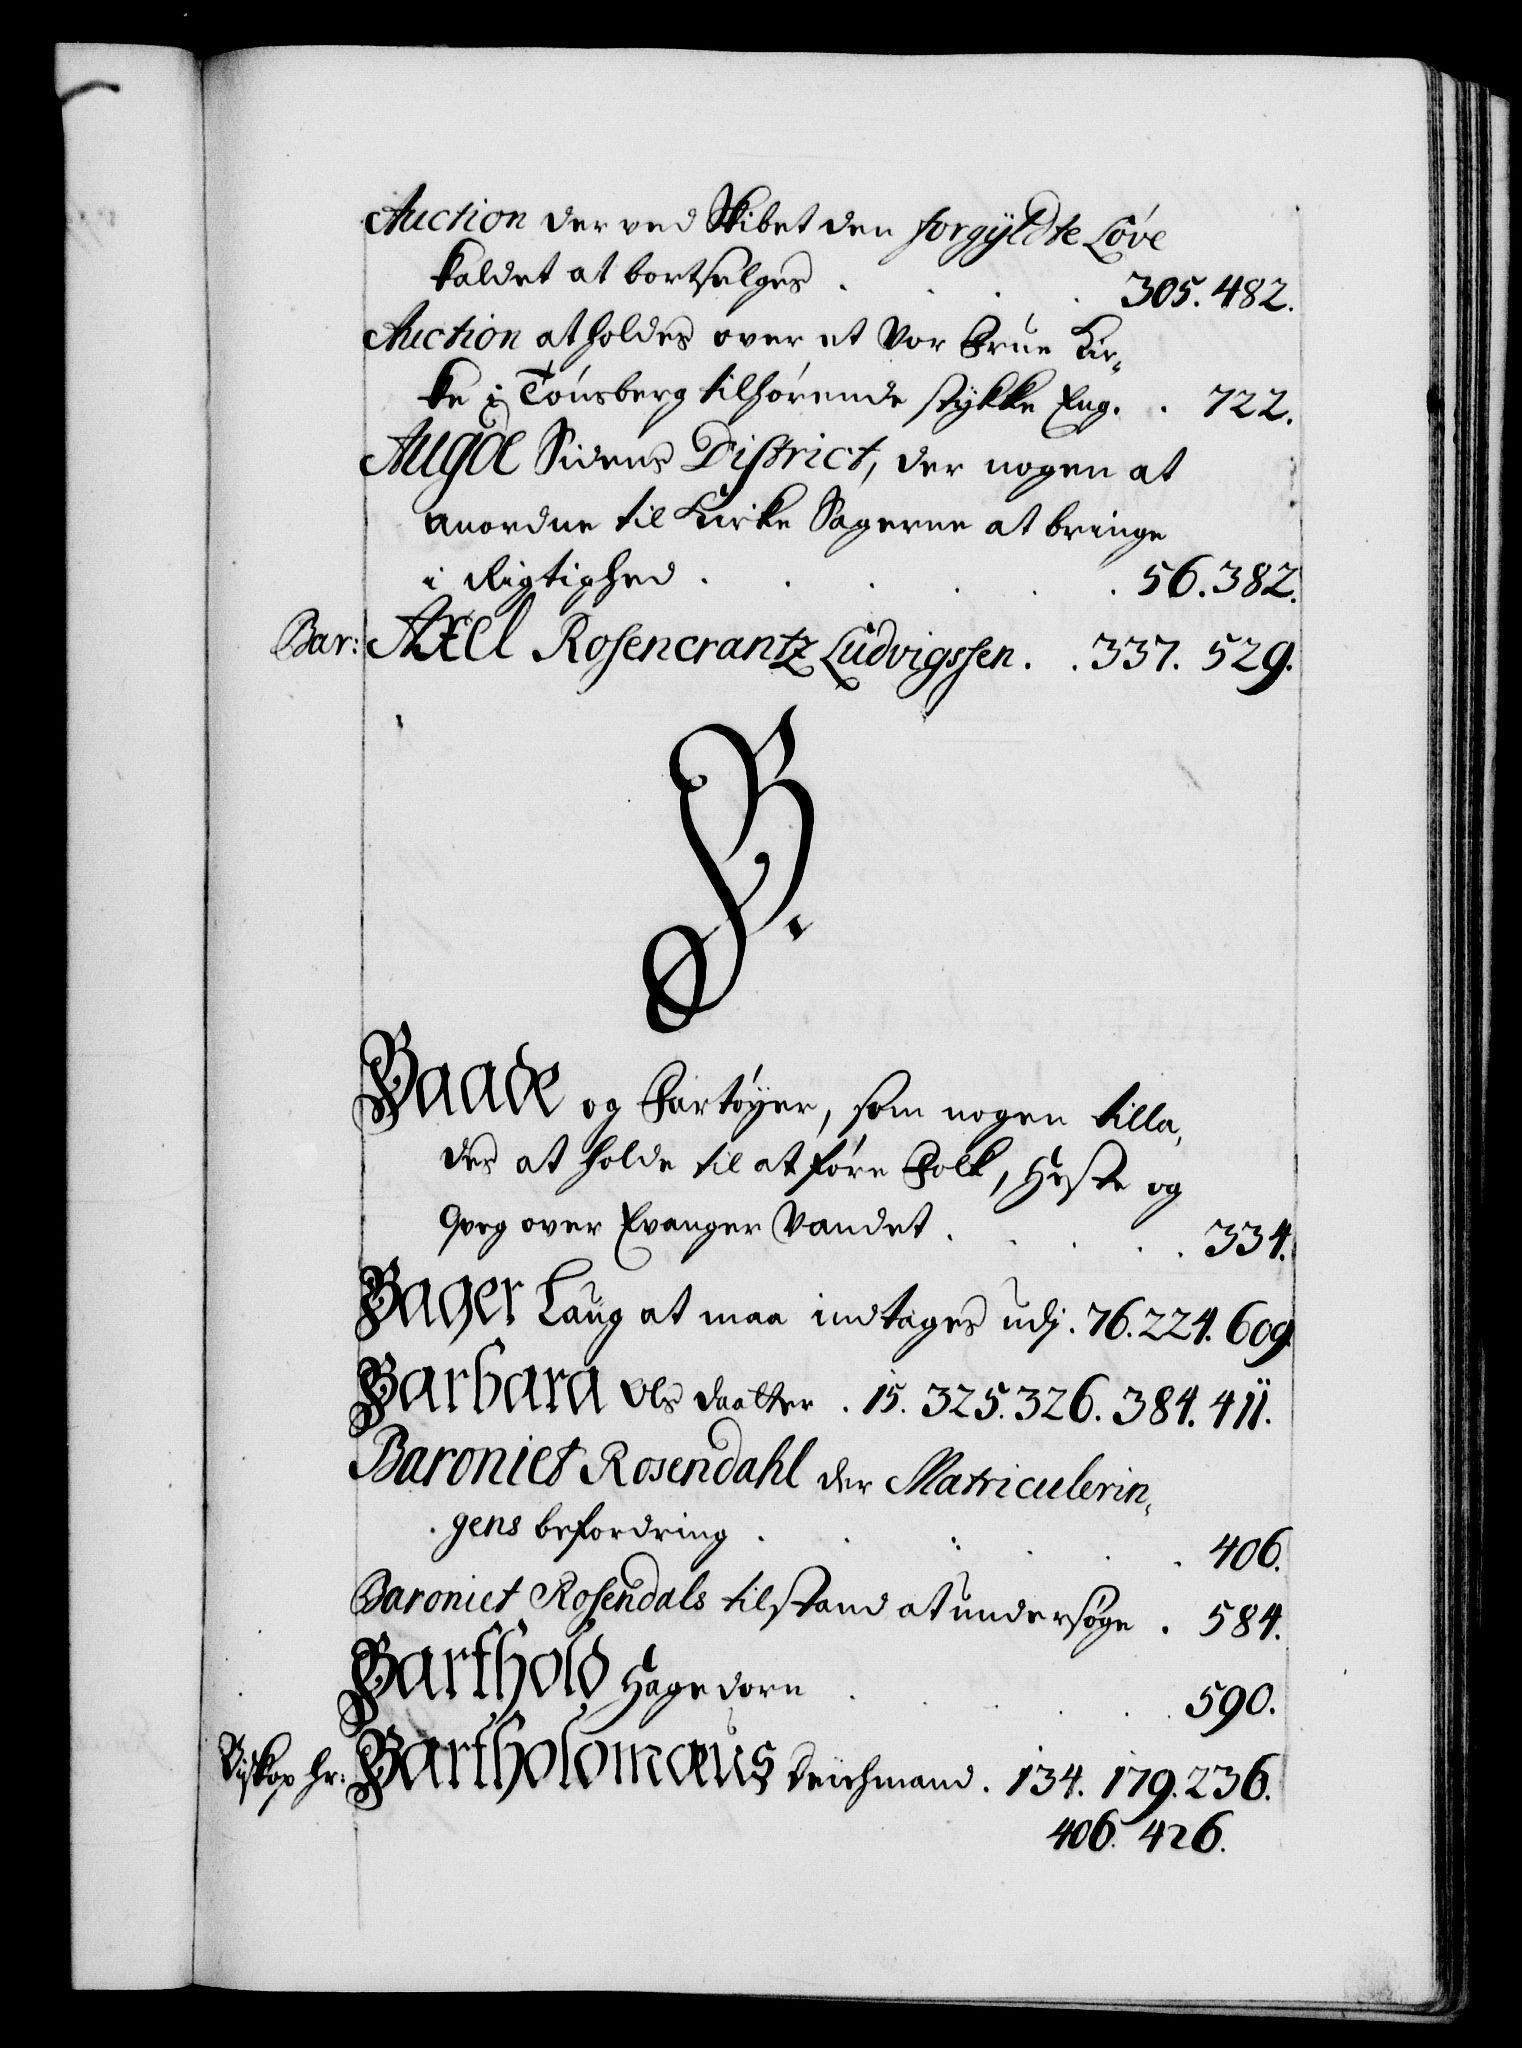 Auction der ved Skibet den forgÿldte Løve
kaldet at bortselges . . . . 305. 482.
Auction at holdes over et Vor Frue Kir„
ke i Tønsberg tilhørende stykke Eng. . 722.
Augde Sidens District, der nogen at
anordne til Kirke Sagerne at bringe
i Rigtighed . . . . . . 56. 382.
Bar: Axel Rosencrantz Ludvigssen. . 337. 529.
B.
Baade og Fartøyer, som nogen tilla„
des at holde til at føre Folk, Heste og
Qveg over Evanger Vandet . . . . . 334.
Bager Laug at maa indtages udj. 76. 224. 609
Barbara Ols daatter . 15. 325. 326. 384. 411.
Baroniet Rosendahl der Matriculerin„
gens befordring . . . . . . 406.
Baroniet Rosendals tilstand at undersøge . 584.
Barthold Hagedorn . . . . . 590.
Biskop hr: Bartholomæus Deichmand. 134. 179. 236.
406. 426.